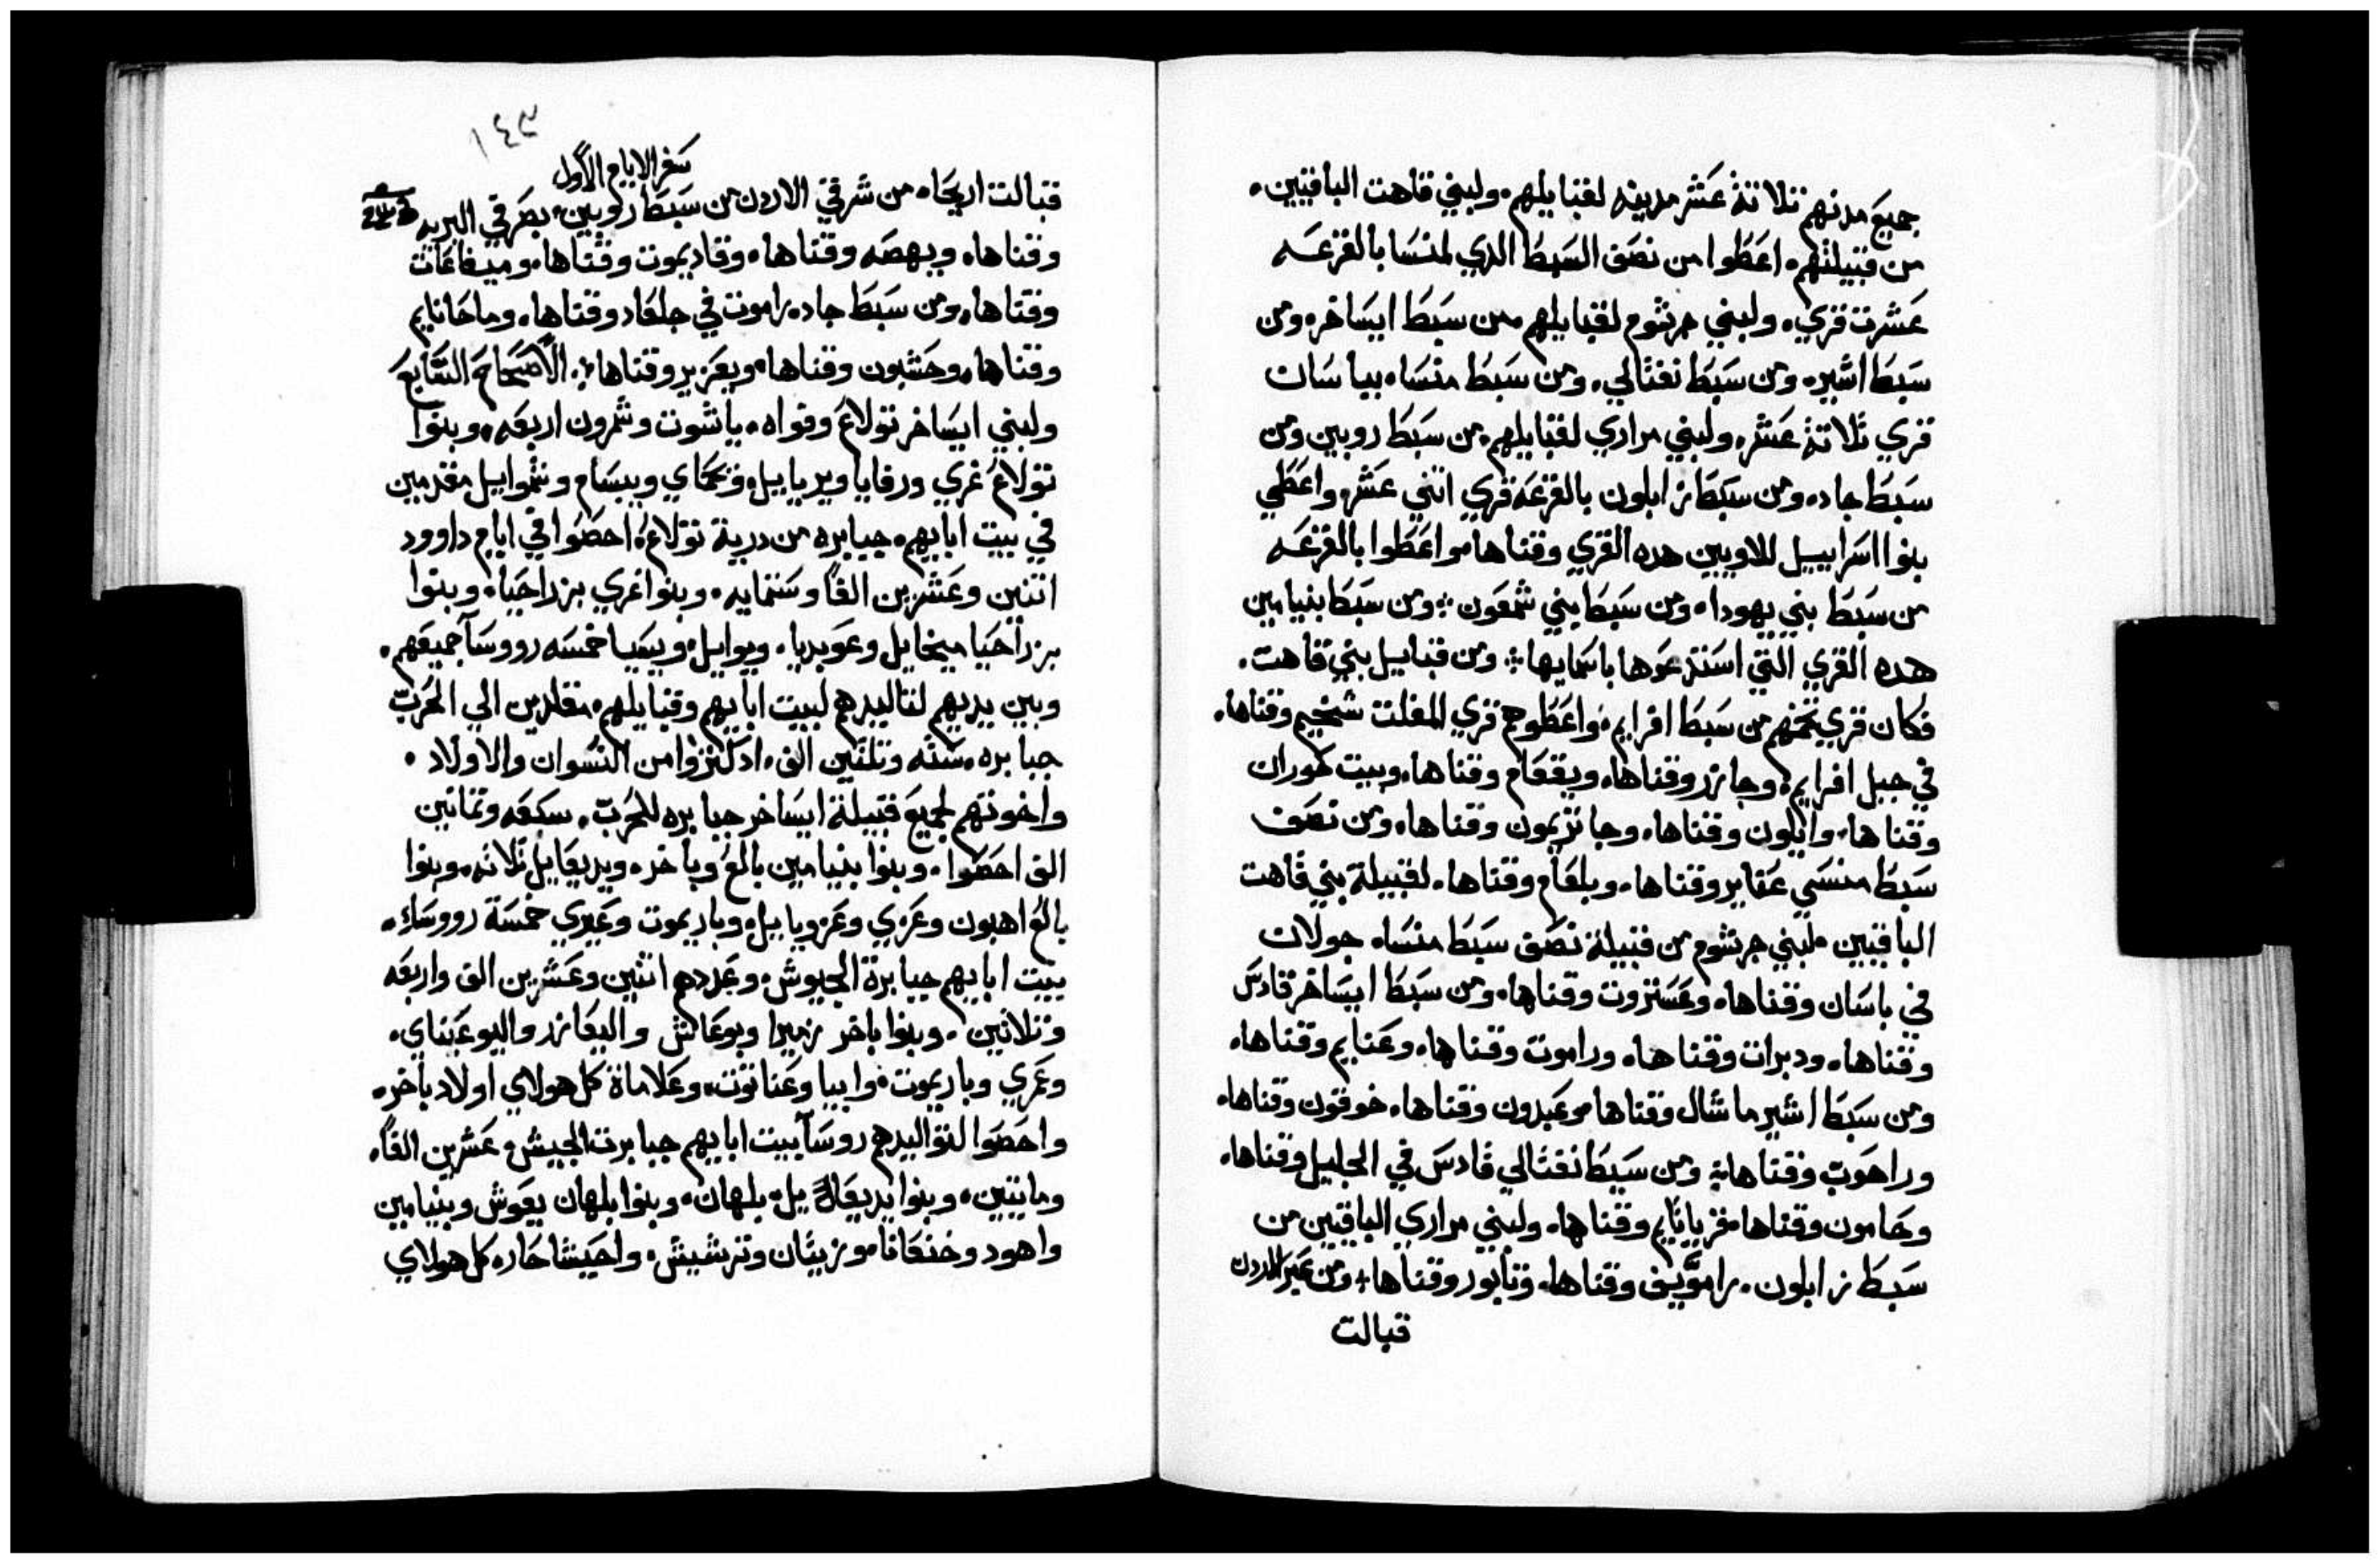 جميع مدنهم تلاتة عشر مدينه لقبايلهم ولبني قاهت الباقيين
من قبيلتهم اعطوا من نصف السبط الدي لمنسا بالقرعه
عشرت قري ولبني جرشوم لقبايلهم من سبط ايساخر ومن
سبط اشير ومن سبط نفتالي ومن سبط منسا بياسان
قري تلاتة عشر ولبني مراري لقبايلهم من سبط روبين ومن
سبط جاد ومن سبط زابلون بالقرعه قري اتني عشر واعطي
بنوا اسراييل للاويين هده القري وقناها واعطوا بالقرعه
من سبط بني يهودا ومن سبط بني شمعون ومن سبط بنيامين
هده القري التي استدعوها باسمايها ومن قبايل بني قاهت
فكان قري تخمهم من سبط افرايم واعطوهم قري المفلت شخيم وقناها
في جبل افرايم وجازر وقناها ويقعام وقناها وبيت حوران
وقناها وايلون وقناها وجاتريمون وقناها ومن نصف
سبط منسي عناير وقناها وبلعام وقناها لقبيلة بني قاهت
الباقيين لبني جرشوم من قبيلة نصف سبط منسا جولان
في باسان وقناها وعستروت وقناها ومن سبط ايساخر قادس
وقناها ودبرات وقناها وراموت وقناها وعنايم وقناها
ومن سبط اشير ماشال وقناها وعبدون وقناها خوقون وقناها
وراحوب وقناها ومن سبط نفتالي قادس في الجليل وقناها
وحامون وقناها قرياتايم وقناها ولبني مراري الباقيين من
سبط زابلون راموييف وقناها وتابور وقناها ومن عبر الاردن
قبالت
١٤٣
سفر الايام الاول
قبالت اريحا من شرقي الاردن من سبط روبين بصرقي البريه
وقناها ويهصه وقناها وقاديموت وقناها وميفاعات
وقناها ومن سبط جاد راموت في جلعاد وقناها وماحانايم
وقناها وحشبون وقناها ويعزير وقناها الاصحاح السابع
ولبني ايساخر تولاع وفواه ياشوت وشمرون اربعه وبنوا
تولاع غزي ورفايا ويريايل ويحماي ويبسام وشموايل مقدمين
في بيت ابايهم جبابره من درية تولاع احصوا في ايام داوود
اتنين وعشرين الفا وستمايه وبنوا غزي يزراحيا وبنوا
يزراحيا ميخايل وعوبديا ويوايل ويسيا خمسه رووسا جميعهم
وبين يديهم لتاليدهم لبيت ابايهم وقبايلهم مقلدين الي الحرب
جبابره سته وتلتين الف ادكتروا من النسوان والاولاد
واخوتهم لجميع قبيلة ايساخر جبابره للحرب سبعه وتمانين
الف احصوا وبنوا بنيامين بالع وباخر ويديعايل تلاته وبنوا
بالع اهبون وعزي وعزويايل وياريموت وعيري خمسة رووساء
بيت ابايهم جبابرة الجيوش وعددهم اتنين وعشرين الف واربعه
وتلاتين وبنوا باخر زميرا ويوعاش واليعازر واليوعيناي
وعمري وياريموت وابيا وعناتوت وعلاماة كل هولاي اولاد باخر
واحصوا لتواليدهم روسا بيت ابايهم جبابرت الجيش عشرين الفا
ومايتين وبنوا يديعايل بلهان وبنوا بلهان يعوش وبنيامين
واهود وخنعانا وزيتان وترشيش واحيشاحار كل هولاي